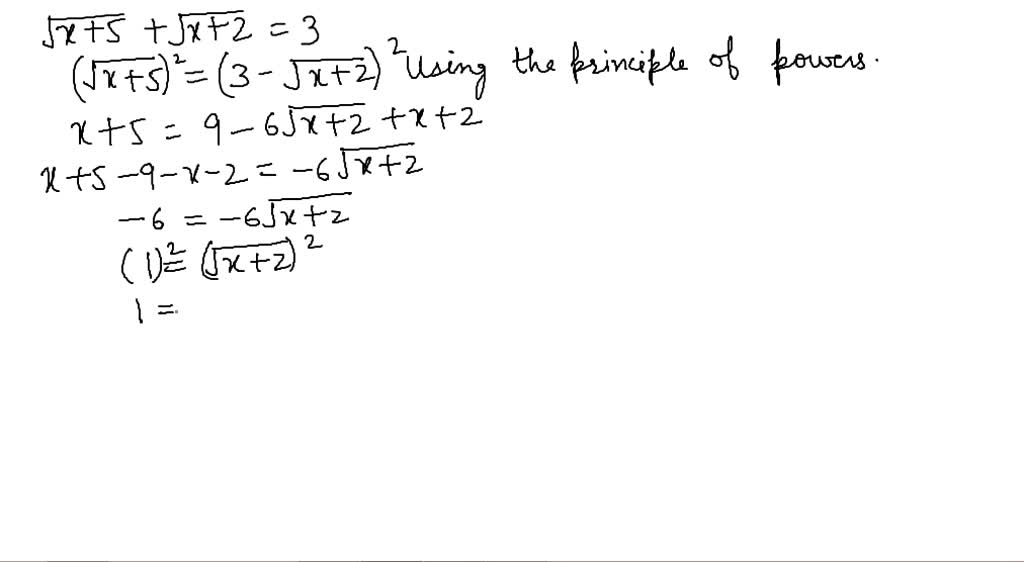 √(x+5) + √(x+2) = 3
(√(x+5))² = (3 - √(x+2))² Using the principle of powers.
x+5 = 9 - 6√(x+2) + x+2
x+5 -9-x-2 = -6√(x+2)
-6 = -6√(x+2)
(1)² = (√(x+2))²
1 =